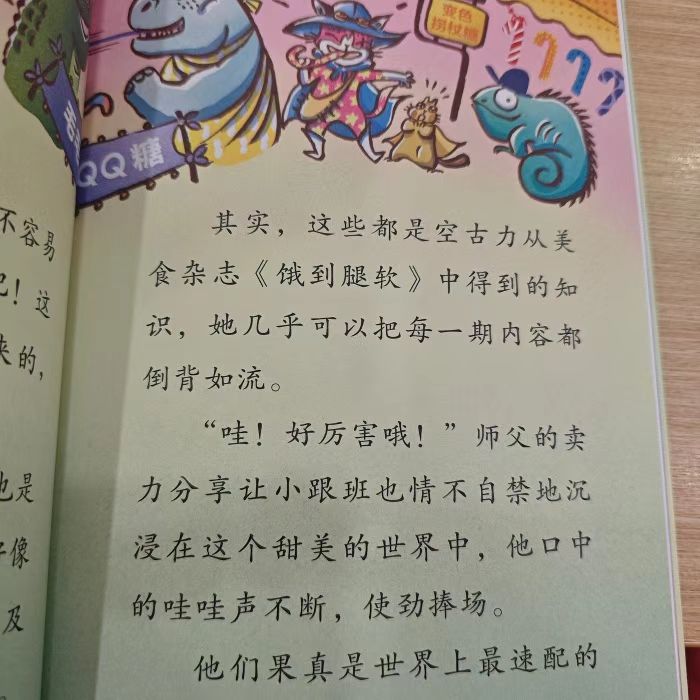 变色
拐杖糖
QQ糖
不容易
吧！这
来的，
也是
好像
及
其实，这些都是空古力从美
食杂志《饿到腿软》中得到的知
识，她几乎可以把每一期内容都
倒背如流。
“哇！好厉害哦！”师父的卖
力分享让小跟班也情不自禁地沉
浸在这个甜美的世界中，他口中
的哇哇声不断，使劲捧场。
他们果真是世界上最速配的